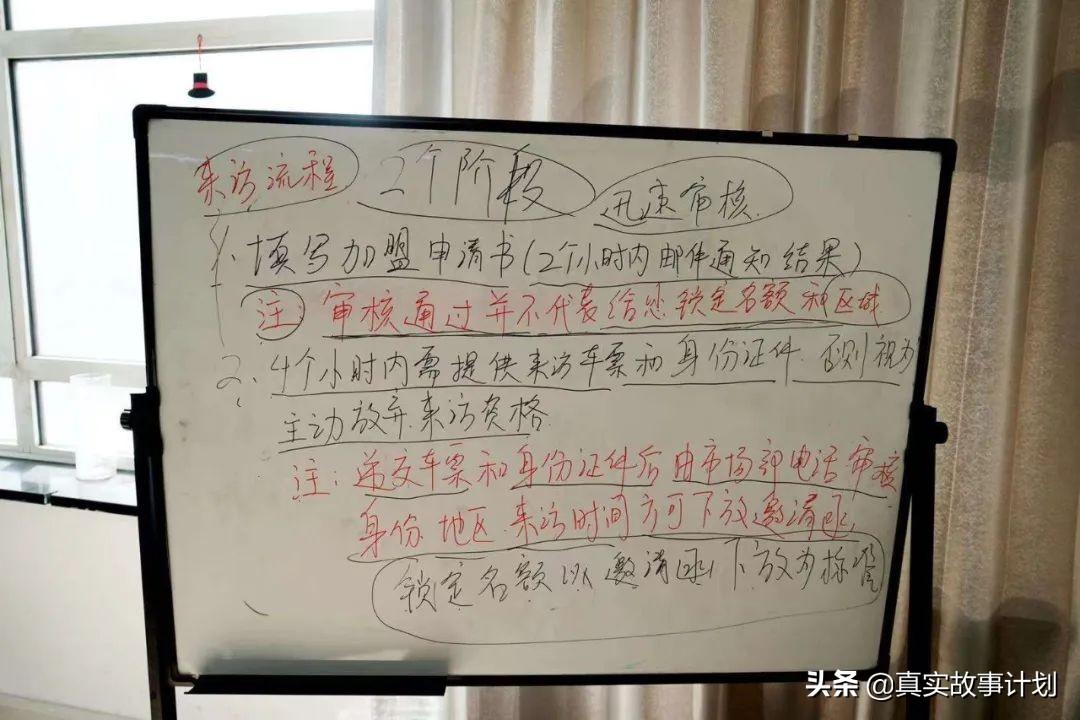 来访流程 2个阶段 迅速审核
1. 填写加盟申请书(2个小时内邮件通知结果)
注: 审核通过并不代表给您锁定名额和区域
2. 4个小时内需提供来访车票和身份证件.否则视为
主动放弃来访资格
注:递交车票和身份证件后由市场部电话审核
身份.地区.来访时间方可下放邀请函,
锁定名额以邀请函下放为标准
头条 @真实故事计划